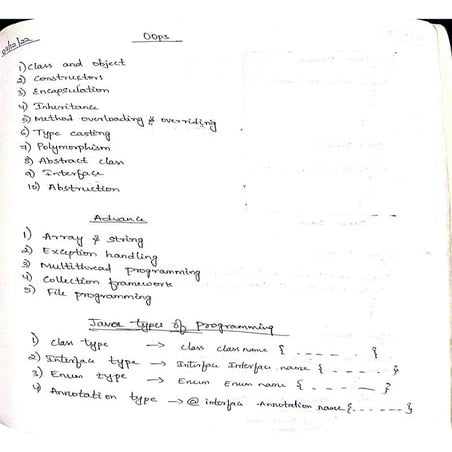 02/12/22
OOps
1) Class and object
2) Constructors
3) Encapsulation
4) Inheritance
5) Method overloading & overriding
6) Type casting
7) Polymorphism
8) Abstract class
9) Interface
10) Abstruction
Advance
1) Array & string
2) Exception handling
3) Multithread programming
4) Collection framework
5) File programming
Java types of programming
1) class type → class classname { - - - - . }
2) Interface type → Interface Interface name { - - - - . }
3) Enum type → Enum Enum name { - - - - }
4) Annotation type → @ interface Annotation name {- - - - - -}